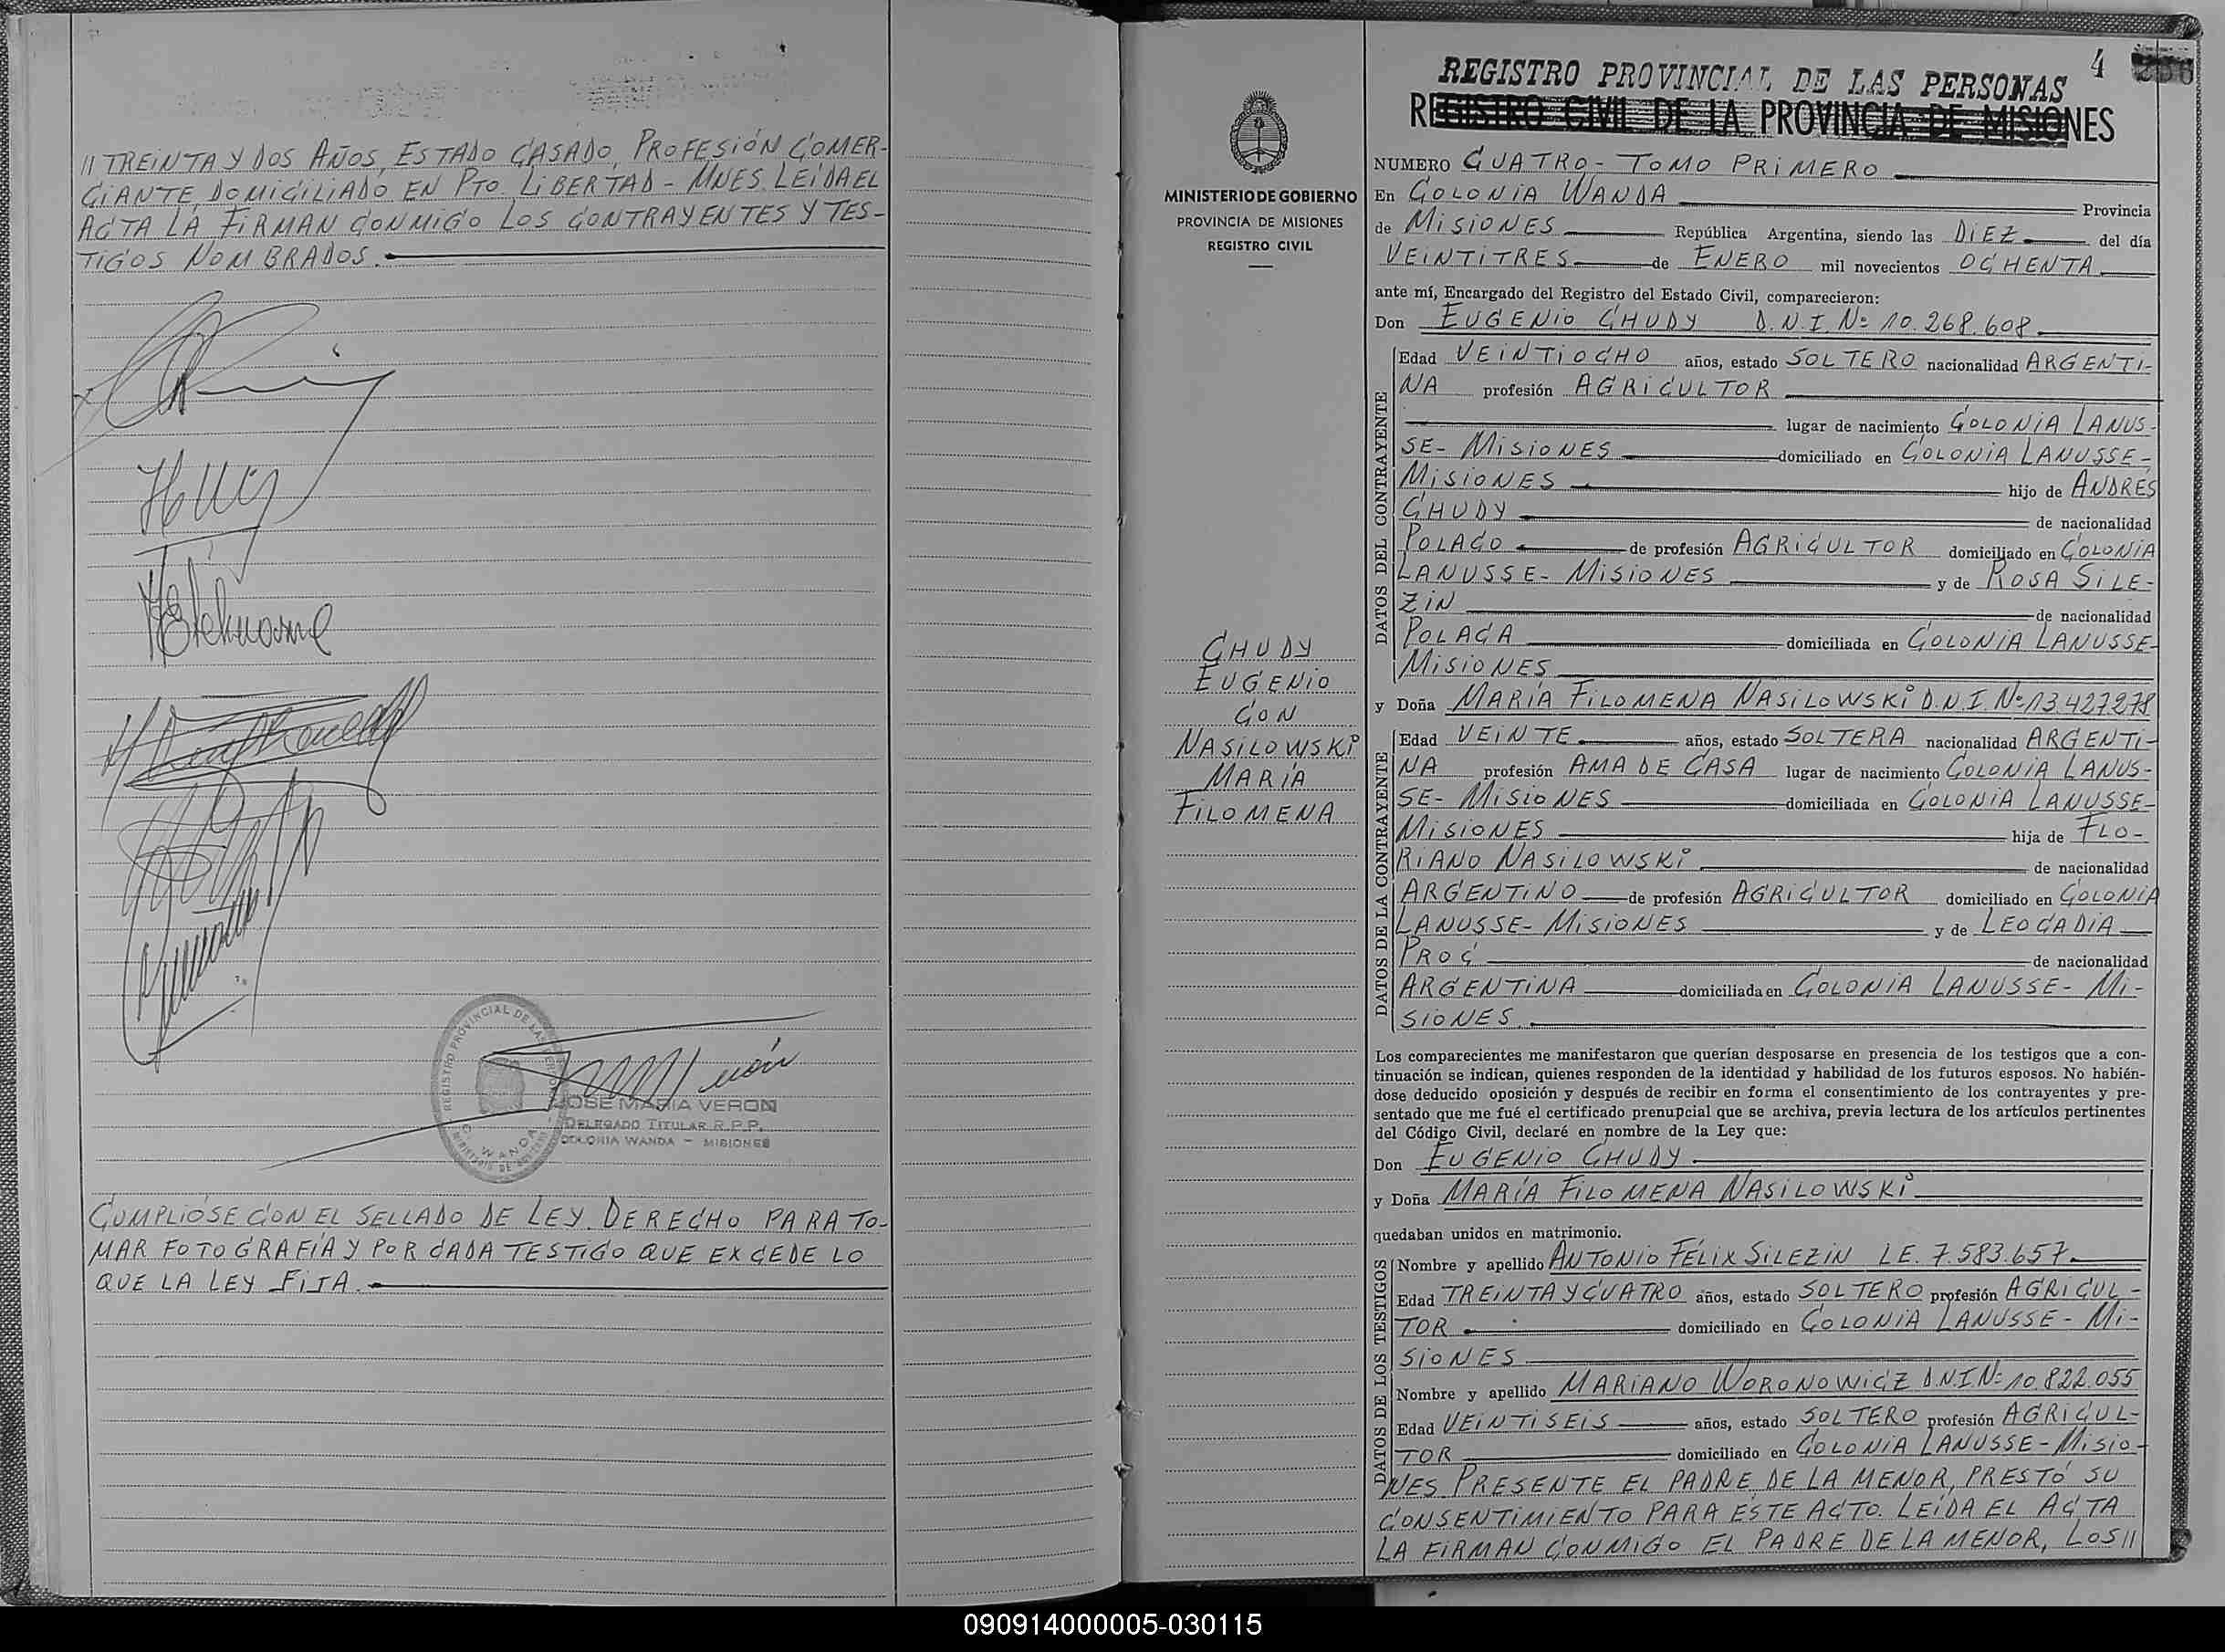 // TREINTA Y DOS AÑOS, ESTADO CASADO, PROFESIÓN COMER-
CIANTE, DOMICILIADO EN PTO. LIBERTAD - MNES. LEIDA EL
ACTA LA FIRMAN CONMIGO LOS CONTRAYENTES Y TES-
TIGOS NOMBRADOS.
REGISTRO PROVINCIAL DE LAS
C. WANDA
JOSE MARIA VERON
DELEGADO TITULAR R.P.P.
COLONIA WANDA - MISIONES
CUMPLIÓSE CON EL SELLADO DE LEY. DERECHO PARA TO-
MAR FOTOGRAFÍA Y POR CADA TESTIGO QUE EXCEDE LO
QUE LA LEY FIJA.
MINISTERIO DE GOBIERNO
PROVINCIA DE MISIONES
REGISTRO CIVIL
CHUDY
EUGENIO
CON
NASILOWSKI
MARÍA
FILOMENA
4
REGISTRO PROVINCIAL DE LAS PERSONAS
REGISTRO CIVIL DE LA PROVINCIA DE MISIONES
NUMERO CUATRO - TOMO PRIMERO
En COLONIA WANDA Provincia
de MISIONES República Argentina, siendo las DIEZ del día
VEINTITRES de ENERO mil novecientos OCHENTA
ante mí, Encargado del Registro del Estado Civil, comparecieron:
Don EUGENIO CHUDY D.N.I. Nº 10.268.608
DATOS DEL CONTRAYENTE
Edad VEINTIOCHO años, estado SOLTERO nacionalidad ARGENTI-
NA profesión AGRICULTOR
lugar de nacimiento COLONIA LANUS-
SE - MISIONES domiciliado en COLONIA LANUSSE -
MISIONES hijo de ANDRÉS
CHUDY de nacionalidad
POLACO de profesión AGRICULTOR domiciliado en COLONIA
LANUSSE - MISIONES y de ROSA SILE-
ZIN de nacionalidad
POLACA domiciliada en COLONIA LANUSSE -
MISIONES
y Doña MARÍA FILOMENA NASILOWSKI D.N.I. Nº 13.427.278
DATOS DE LA CONTRAYENTE
Edad VEINTE años, estado SOLTERA nacionalidad ARGENTI-
NA profesión AMA DE CASA lugar de nacimiento COLONIA LANUS-
SE - MISIONES domiciliada en COLONIA LANUSSE -
MISIONES hija de FLO-
RIANO NASILOWSKI de nacionalidad
ARGENTINO de profesión AGRICULTOR domiciliado en COLONIA
LANUSSE - MISIONES y de LEOCADIA
PROC de nacionalidad
ARGENTINA domiciliada en COLONIA LANUSSE - MI-
SIONES
Los comparecientes me manifestaron que querían desposarse en presencia de los testigos que a con-
tinuación se indican, quienes responden de la identidad y habilidad de los futuros esposos. No habién-
dose deducido oposición y después de recibir en forma el consentimiento de los contrayentes y pre-
sentado que me fué el certificado prenupcial que se archiva, previa lectura de los artículos pertinentes
del Código Civil, declaré en nombre de la Ley que:
Don EUGENIO CHUDY
y Doña MARÍA FILOMENA NASILOWSKI
quedaban unidos en matrimonio.
DATOS DE LOS TESTIGOS
Nombre y apellido ANTONIO FÉLIX SILEZIN LE. 7.583.657
Edad TREINTA Y CUATRO años, estado SOLTERO profesión AGRICUL-
TOR domiciliado en COLONIA LANUSSE - MI-
SIONES
Nombre y apellido MARIANO WORONOWICZ D.N.I Nº 10.822.055
Edad VEINTISEIS años, estado SOLTERO profesión AGRICUL-
TOR domiciliado en COLONIA LANUSSE - MISIO-
NES. PRESENTE EL PADRE DE LA MENOR, PRESTÓ SU
CONSENTIMIENTO PARA ESTE ACTO. LEÍDA EL ACTA
LA FIRMAN CONMIGO EL PADRE DE LA MENOR, LOS //
090914000005-030115